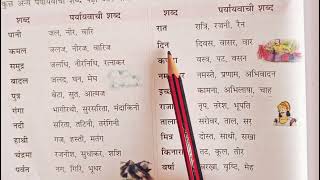 कुछ अन्य पर्यायवाची शब्द
शब्द पर्यायवाची शब्द
पानी जल, नीर, वारि
कमल जलज, नीरज, वारिज
समुद्र जलधि, नीरनिधि, रत्नाकर
बादल जलद, घन, मेघ
पुत्र बेटा, सुत, आत्मज
गंगा भागीरथी, सुरसरिता, मंदाकिनी
नदी सरिता, तटिनी, तरंगिनी
हाथी गज, हस्ती, मतंग
चंद्रमा रजनीश, सुधाकर, शशि
पर्वत नग, गिरि, भूधर
शब्द पर्यायवाची शब्द
रात रात्रि, रजनी, रैन
दिन दिवस, वासर, वार
वस्त्र, पट, वसन
नमस्ते, प्रणाम, अभिवादन
कामना, अभिलाषा, चाह
राजा नृप, नरेश, भूपति
तालाब सर, सरोवर
मित्र दोस्त, साथी, सखा
किनारा तट, कूल, तीर
वर्षा बरखा, वृष्टि, मेह